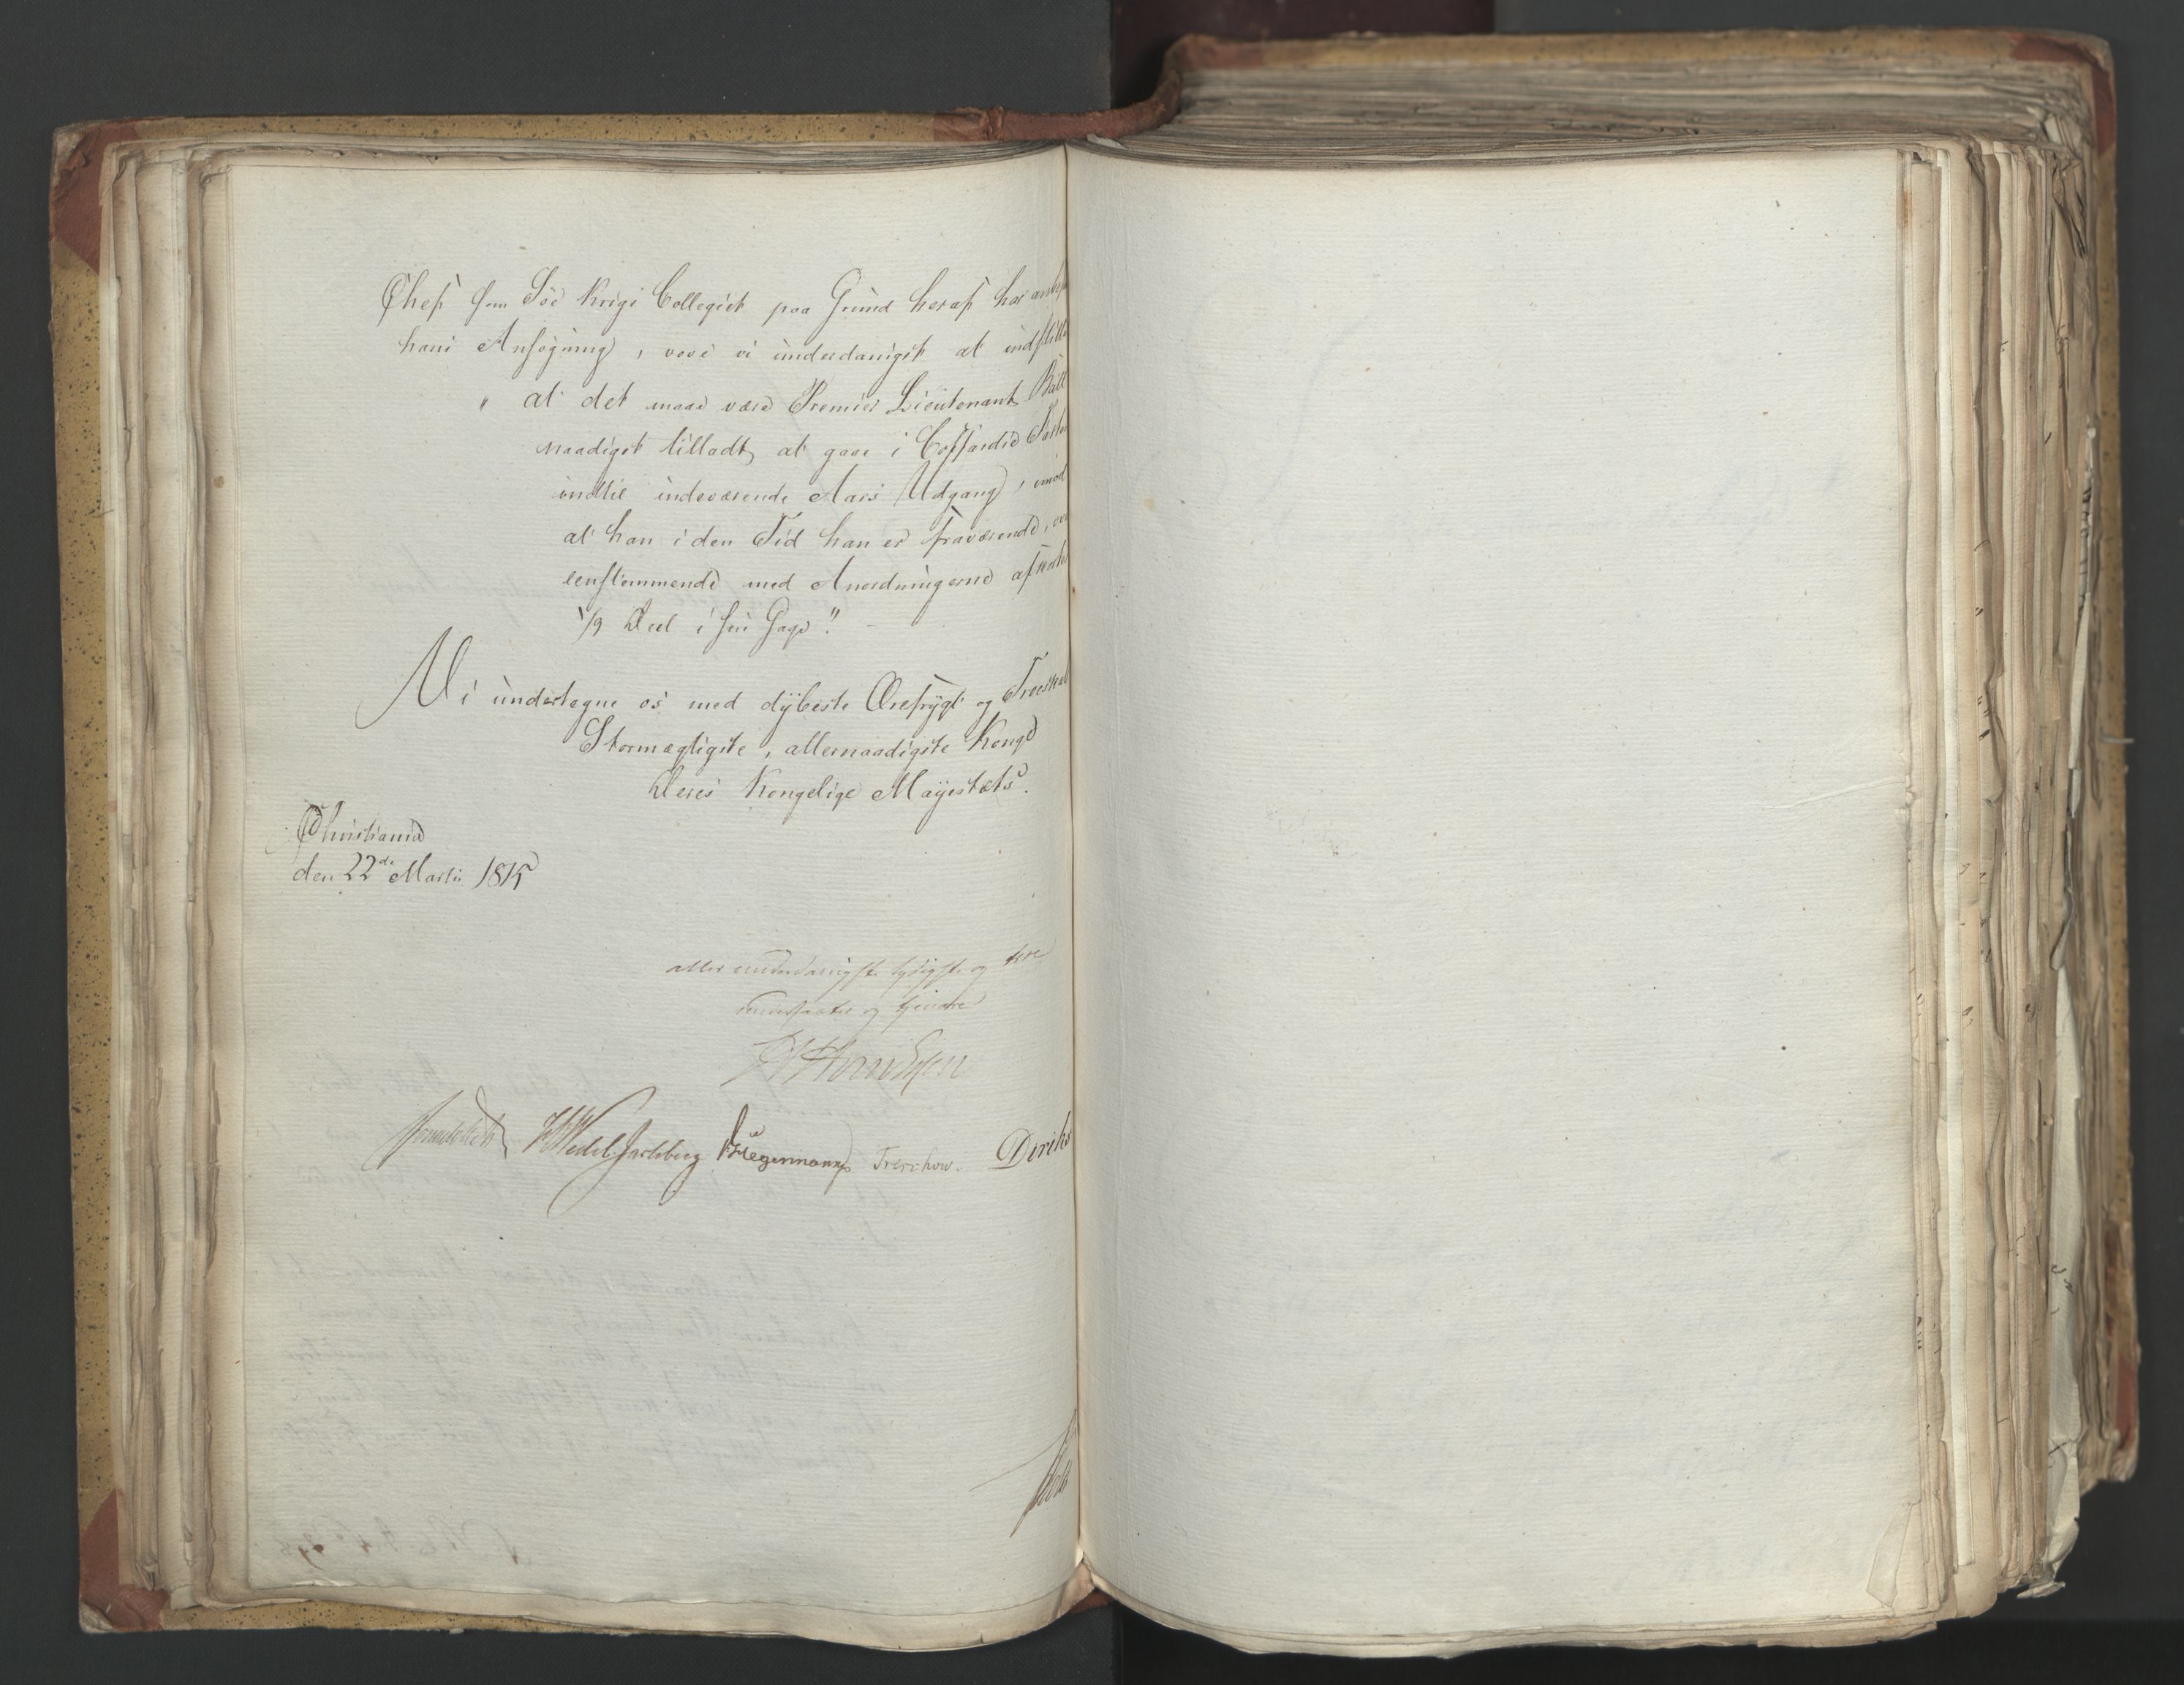 Chef som Söe Krigs Collegiet paa Grund heraf har
hans Ansøgning, vove vi underdanigst at indstille
" at det maae være Premier Lieutenant Bull
naadigst tilladt, at gaae i Coffardie Farten
indtil indeværende Aars Udgang, imod
at han i den Tid han er fraværende, over
eenstemmende med Anordningerne afkortes
1/9 Deel i sin Gage."
Vi undertegne os med dybeste Ærefrygt og Troeskab
Stormægtigste, allernaadigste Konge
Deres Kongelige Mayestæts.
Christiania
den 22de Martii 1815
aller underdanigste lydigste og troe
undersaatter og tjenere
Sommerhielm HWedel Jarlsberg DHegermann Treschow. Diriks